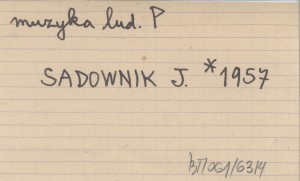 muzyka lud. P
SADOWNIK J. *1957
BT/061/6314